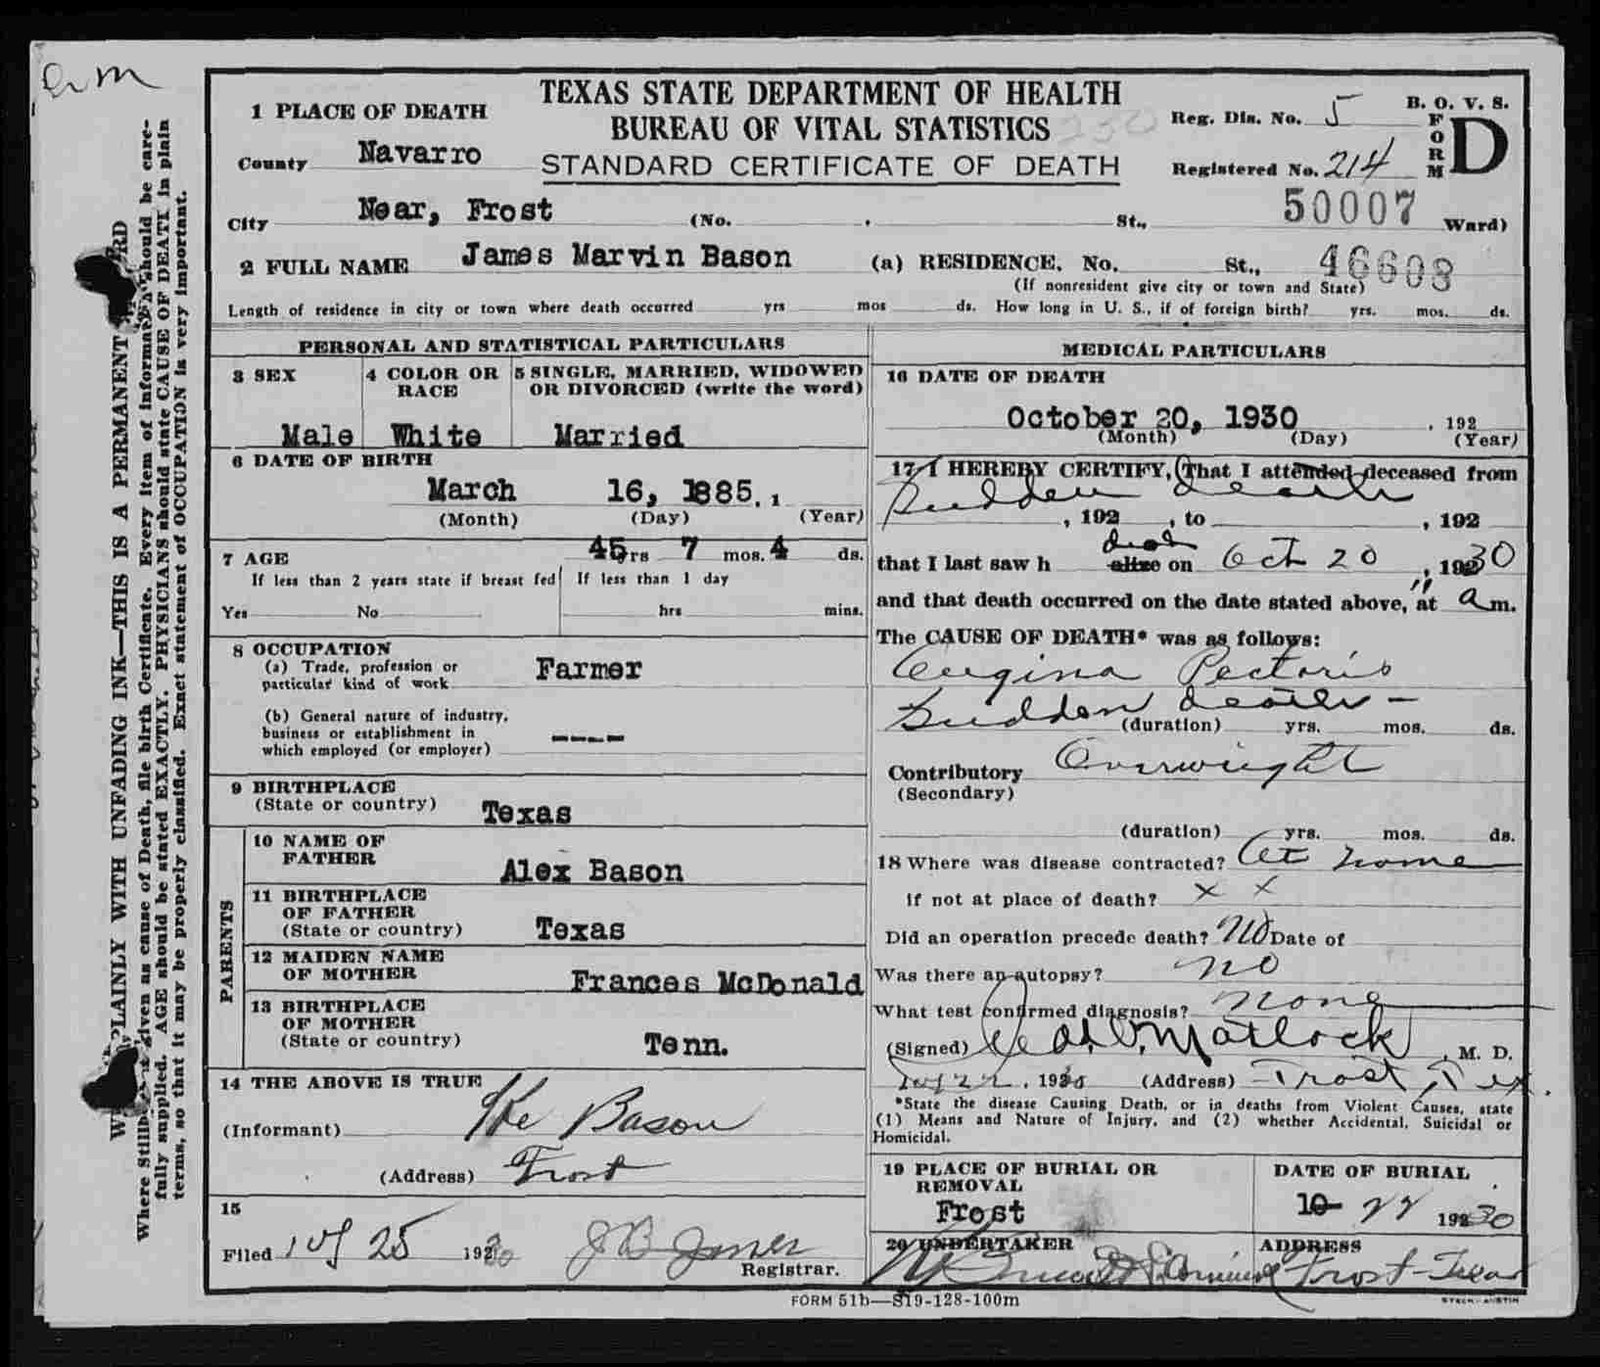 am
TEXAS STATE DEPARTMENT OF HEALTH
BUREAU OF VITAL STATISTICS
STANDARD CERTIFICATE OF DEATH
Reg. Dis. No. 5
Registered No. 214
B. O. V. S.
FORM D
1 PLACE OF DEATH
County Navarro
City Near, Frost (No. St., 50007 Ward)
2 FULL NAME James Marvin Bason (a) RESIDENCE. No. St., 46608
(If nonresident give city or town and State)
Length of residence in city or town where death occurred yrs mos ds. How long in U. S., if of foreign birth? yrs. mos. ds.
PERSONAL AND STATISTICAL PARTICULARS
3 SEX
Male
4 COLOR OR RACE
White
5 SINGLE, MARRIED, WIDOWED
OR DIVORCED (write the word)
Married
6 DATE OF BIRTH
March 16, 1885.
(Month) (Day) (Year)
7 AGE 45 yrs 7 mos. 4 ds.
If less than 2 years state if breast fed
Yes No
If less than 1 day
hrs mins.
8 OCCUPATION
(a) Trade, profession or
particular kind of work Farmer
(b) General nature of industry,
business or establishment in
which employed (or employer) ----
9 BIRTHPLACE
(State or country) Texas
PARENTS
10 NAME OF
FATHER Alex Bason
11 BIRTHPLACE
OF FATHER
(State or country) Texas
12 MAIDEN NAME
OF MOTHER Frances McDonald
13 BIRTHPLACE
OF MOTHER
(State or country) Tenn.
14 THE ABOVE IS TRUE
(Informant) Ike Bason
(Address) Frost
15
Filed 25 1930
Registrar.
MEDICAL PARTICULARS
16 DATE OF DEATH
October 20, 1930 , 192
(Month) (Day) (Year)
17 I HEREBY CERTIFY, That I attended deceased from
Sudden death
, 192 , to , 192
that I last saw h dead alive on Oct 20 , 1930
and that death occurred on the date stated above, at a m.
The CAUSE OF DEATH* was as follows:
Angina Pectoris
Sudden death -
(duration) yrs. mos. ds.
Contributory Overweight
(Secondary)
(duration) yrs. mos. ds.
18 Where was disease contracted? At home
if not at place of death? x x
Did an operation precede death? No Date of
Was there an autopsy? no
What test confirmed diagnosis? none
(Signed) Matlock , M. D.
22, 1930 (Address) Frost, Tex.
*State the disease Causing Death, or in deaths from Violent Causes, state
(1) Means and Nature of Injury, and (2) whether Accidental, Suicidal or
Homicidal.
19 PLACE OF BURIAL OR
REMOVAL
Frost
DATE OF BURIAL
10- 22 1930
20 UNDERTAKER
ADDRESS
Frost - Texas
FORM 51b—S19-128-100m
PLAINLY WITH UNFADING INK—THIS IS A PERMANENT
Where Stillbirth is given as cause of Death, file birth Certificate. Every item of information should be care-
fully supplied. AGE should be stated EXACTLY. PHYSICIANS should state CAUSE OF DEATH in plain
terms, so that it may be properly classified. Exact statement of OCCUPATION is very important.